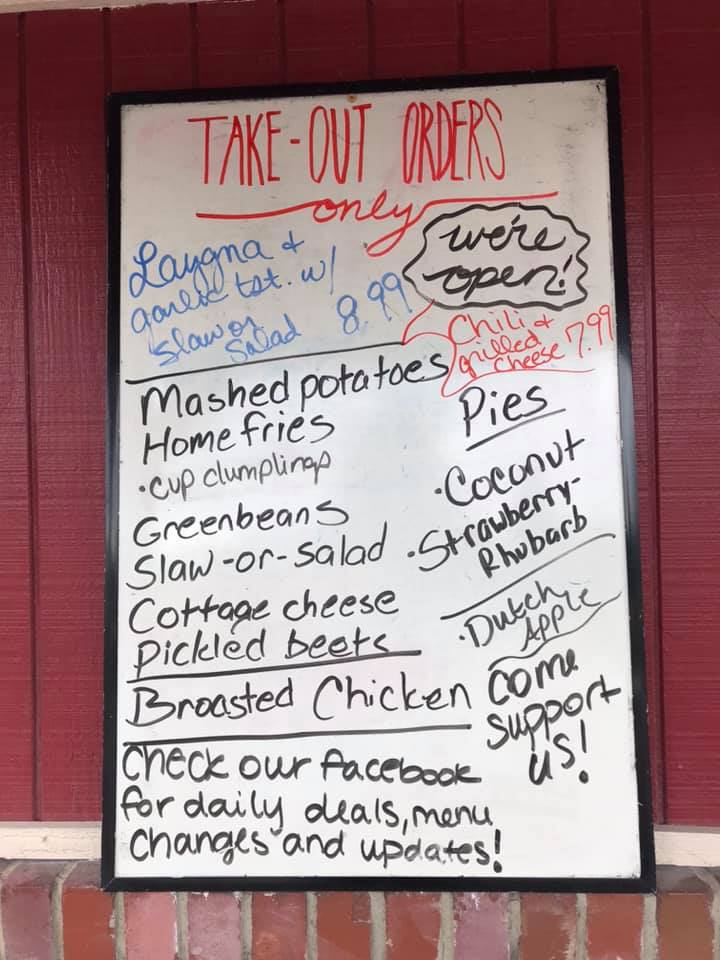 TAKE-OUT ORDERS
only
we're
open!
Laygna +
garlic tst. w/
slaw or
Salad 8.99
Chili +
grilled
cheese 7.99
Mashed potatoes
Home fries
•cup clumplings
Greenbeans
Slaw-or-salad
Cottage cheese
Pickled beets
Pies
•Coconut
•Strawberry-
Rhubarb
•Dutch
Apple
Broasted Chicken
Come
support
us!
Check our facebook
for daily deals, menu
Changes and updates!